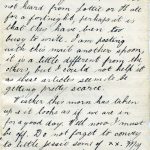 not hard from Lottie or H all
for a fortnight, perhaps it is
that they have been too
busy to write. I am posting
with this mail another spoon,
it is a little different from the
others, but I could not help it
as silver articles seem to be
getting pretty scarce.
Esther this morn has taken
up & it looks as if we are in
for a good day. Well now I must
be off. Do not forget to convey
to little Jessie some of xx. My